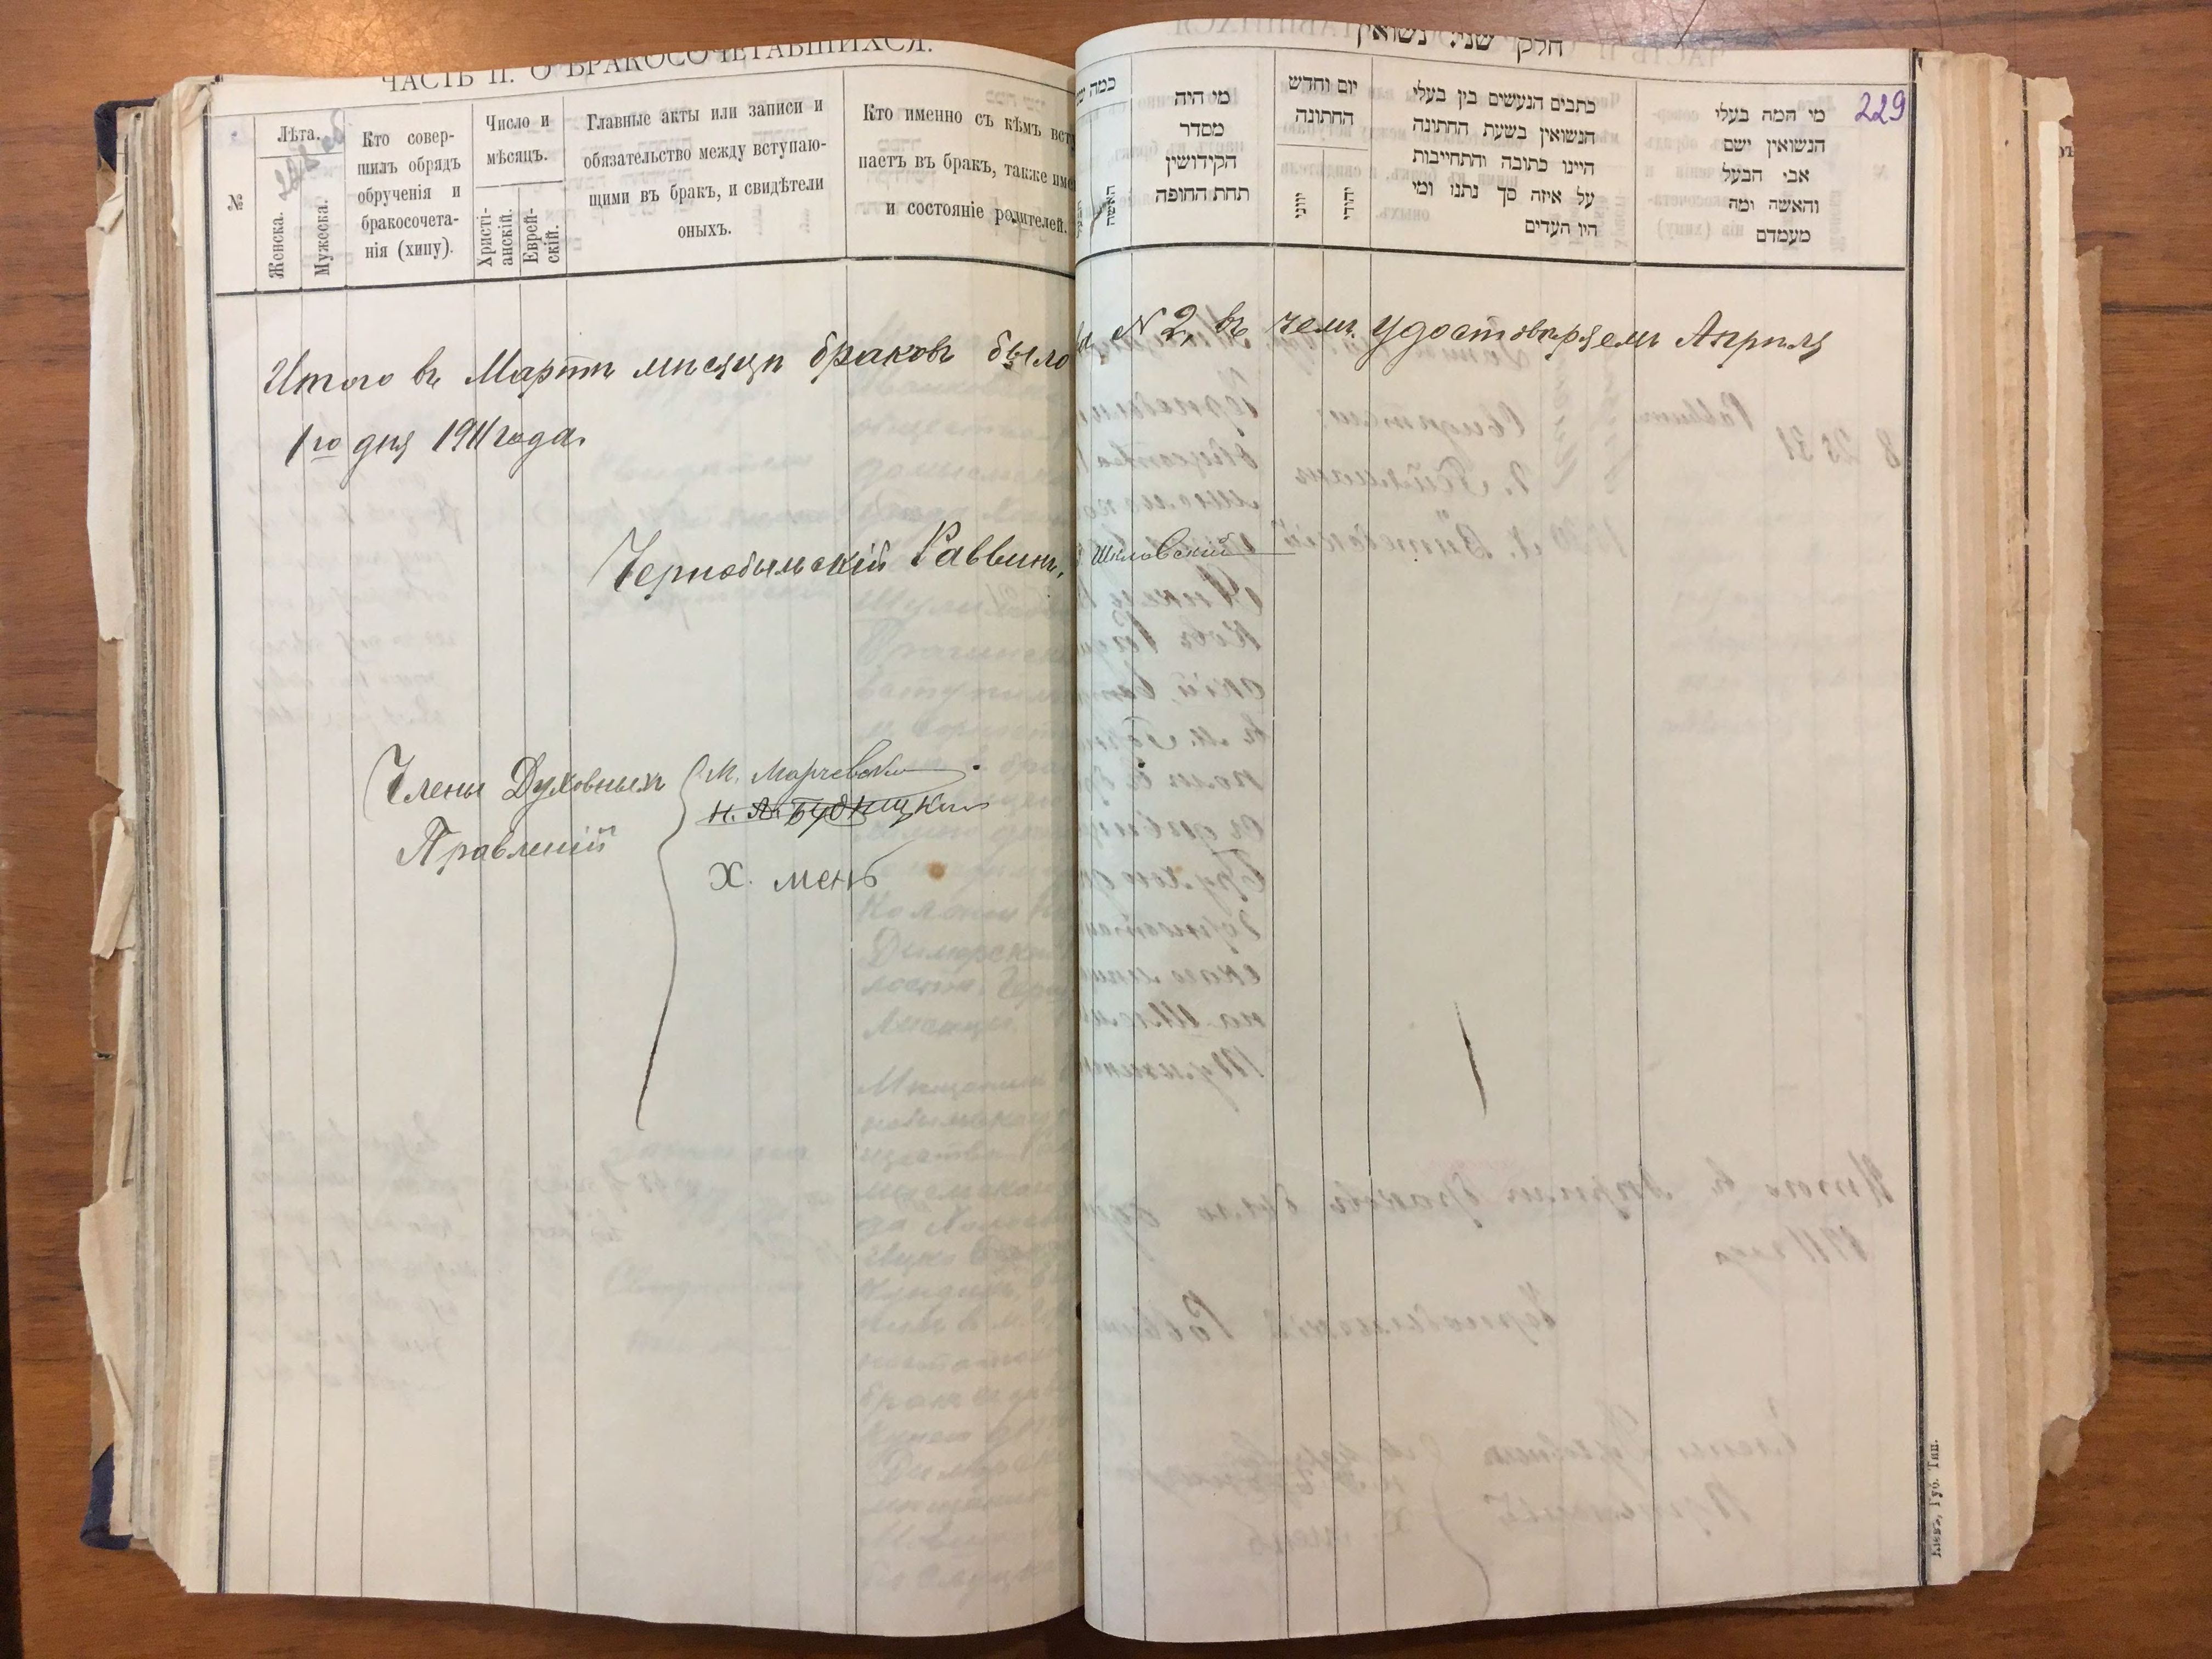 ЧАСТЬ II. О БРАКОСОЧЕТАВШИХСЯ.
№
Лѣта.
Женска.
Мужеска.
Кто совер-
шилъ обрядъ
обрученія и
бракосочета-
нія (хипу).
Число и
мѣсяцъ.
Христі-
анскій.
Еврей-
скій.
Главные акты или записи и
обязательство между вступаю-
щими въ бракъ, и свидѣтели
оныхъ.
Кто именно съ кѣмъ всту
паетъ въ бракъ, также име
и состояніе родителей.
חלק שני. נשואין
כמה
האשה
מי היה
מסדר
הקידושין
תחת החופה
יום וחדש
החתונה
יווני
יהודי
כתבים הנעשים בין בעלי
הנשואין בשעת החתונה
היינו כתובה והתחייבות
על איזה סך נתנו ומי
היו העדים
מי המה בעלי
הנשואין ושם
אבי הבעל
והאשה ומה
מעמדם
229
Итого въ Мартѣ мѣсяцѣ браковъ было № 2, въ чемъ удостовѣряемъ Апрѣля
1го дня 1911 года.
Чернобыльскій Раввинъ, Шкловскій
Члены Духовныхъ
Правленій
М. Марчевскій
Н. А. Будницкій
Х. Мень
Кіевъ, Губ. Тип.